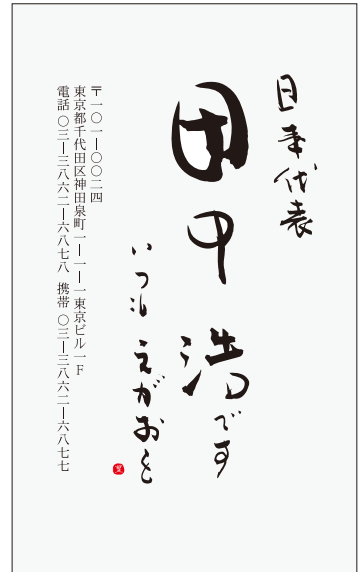 日本代表
田中浩です
いつも えがお
〒一〇一―〇〇二四
東京都千代田区神田泉町一―一―一東京ビル一F
電話 〇三―三八六二―六八七八 携帯 〇三―三八六二―六八七七